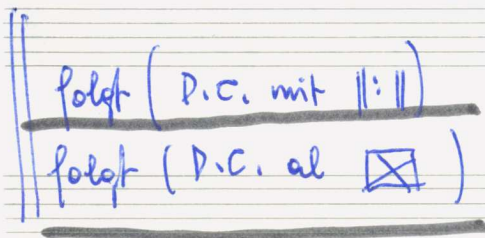 folgt ( D.C. mit ||:||)
folgt ( D.C. al )